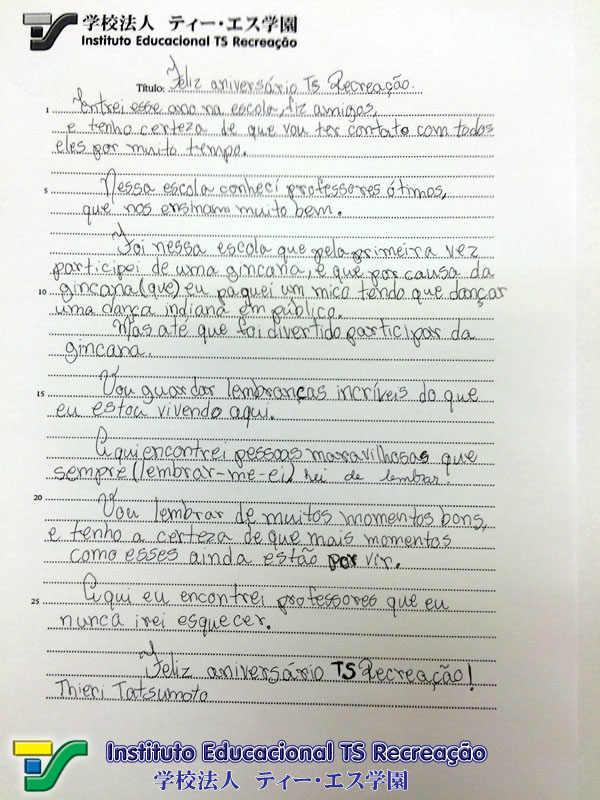 学校法人 ティー・エス学園
Instituto Educacional TS Recreação
Título: Feliz aniversário Ts Recreação.
1 Entrei esse ano na escola, fiz amigos,
e tenho certeza de que vou ter contato com todos
eles por muito tempo.
5 Nessa escola conheci professores ótimos,
que nos ensinam muito bem.
Foi nessa escola que pela primeira vez
participei de uma gincana, e que por causa da
10 gincana (que) eu paguei um mico tendo que dançar
uma dança indiana em público.
Mas até que foi divertido participar da
gincana.
15 Vou guardar lembranças incríveis do que
eu estou vivendo aqui.
Aqui encontrei pessoas maravilhosas que
sempre (lembrar-me-ei) hei de lembrar!
20 Vou lembrar de muitos momentos bons,
e tenho a certeza de que mais momentos
como esses ainda estão por vir.
25 Aqui eu encontrei professores que eu
nunca irei esquecer.
Feliz aniversário TS Recreação!
Thieri Tatsumoto
Instituto Educacional TS Recreação
学校法人 ティー・エス学園